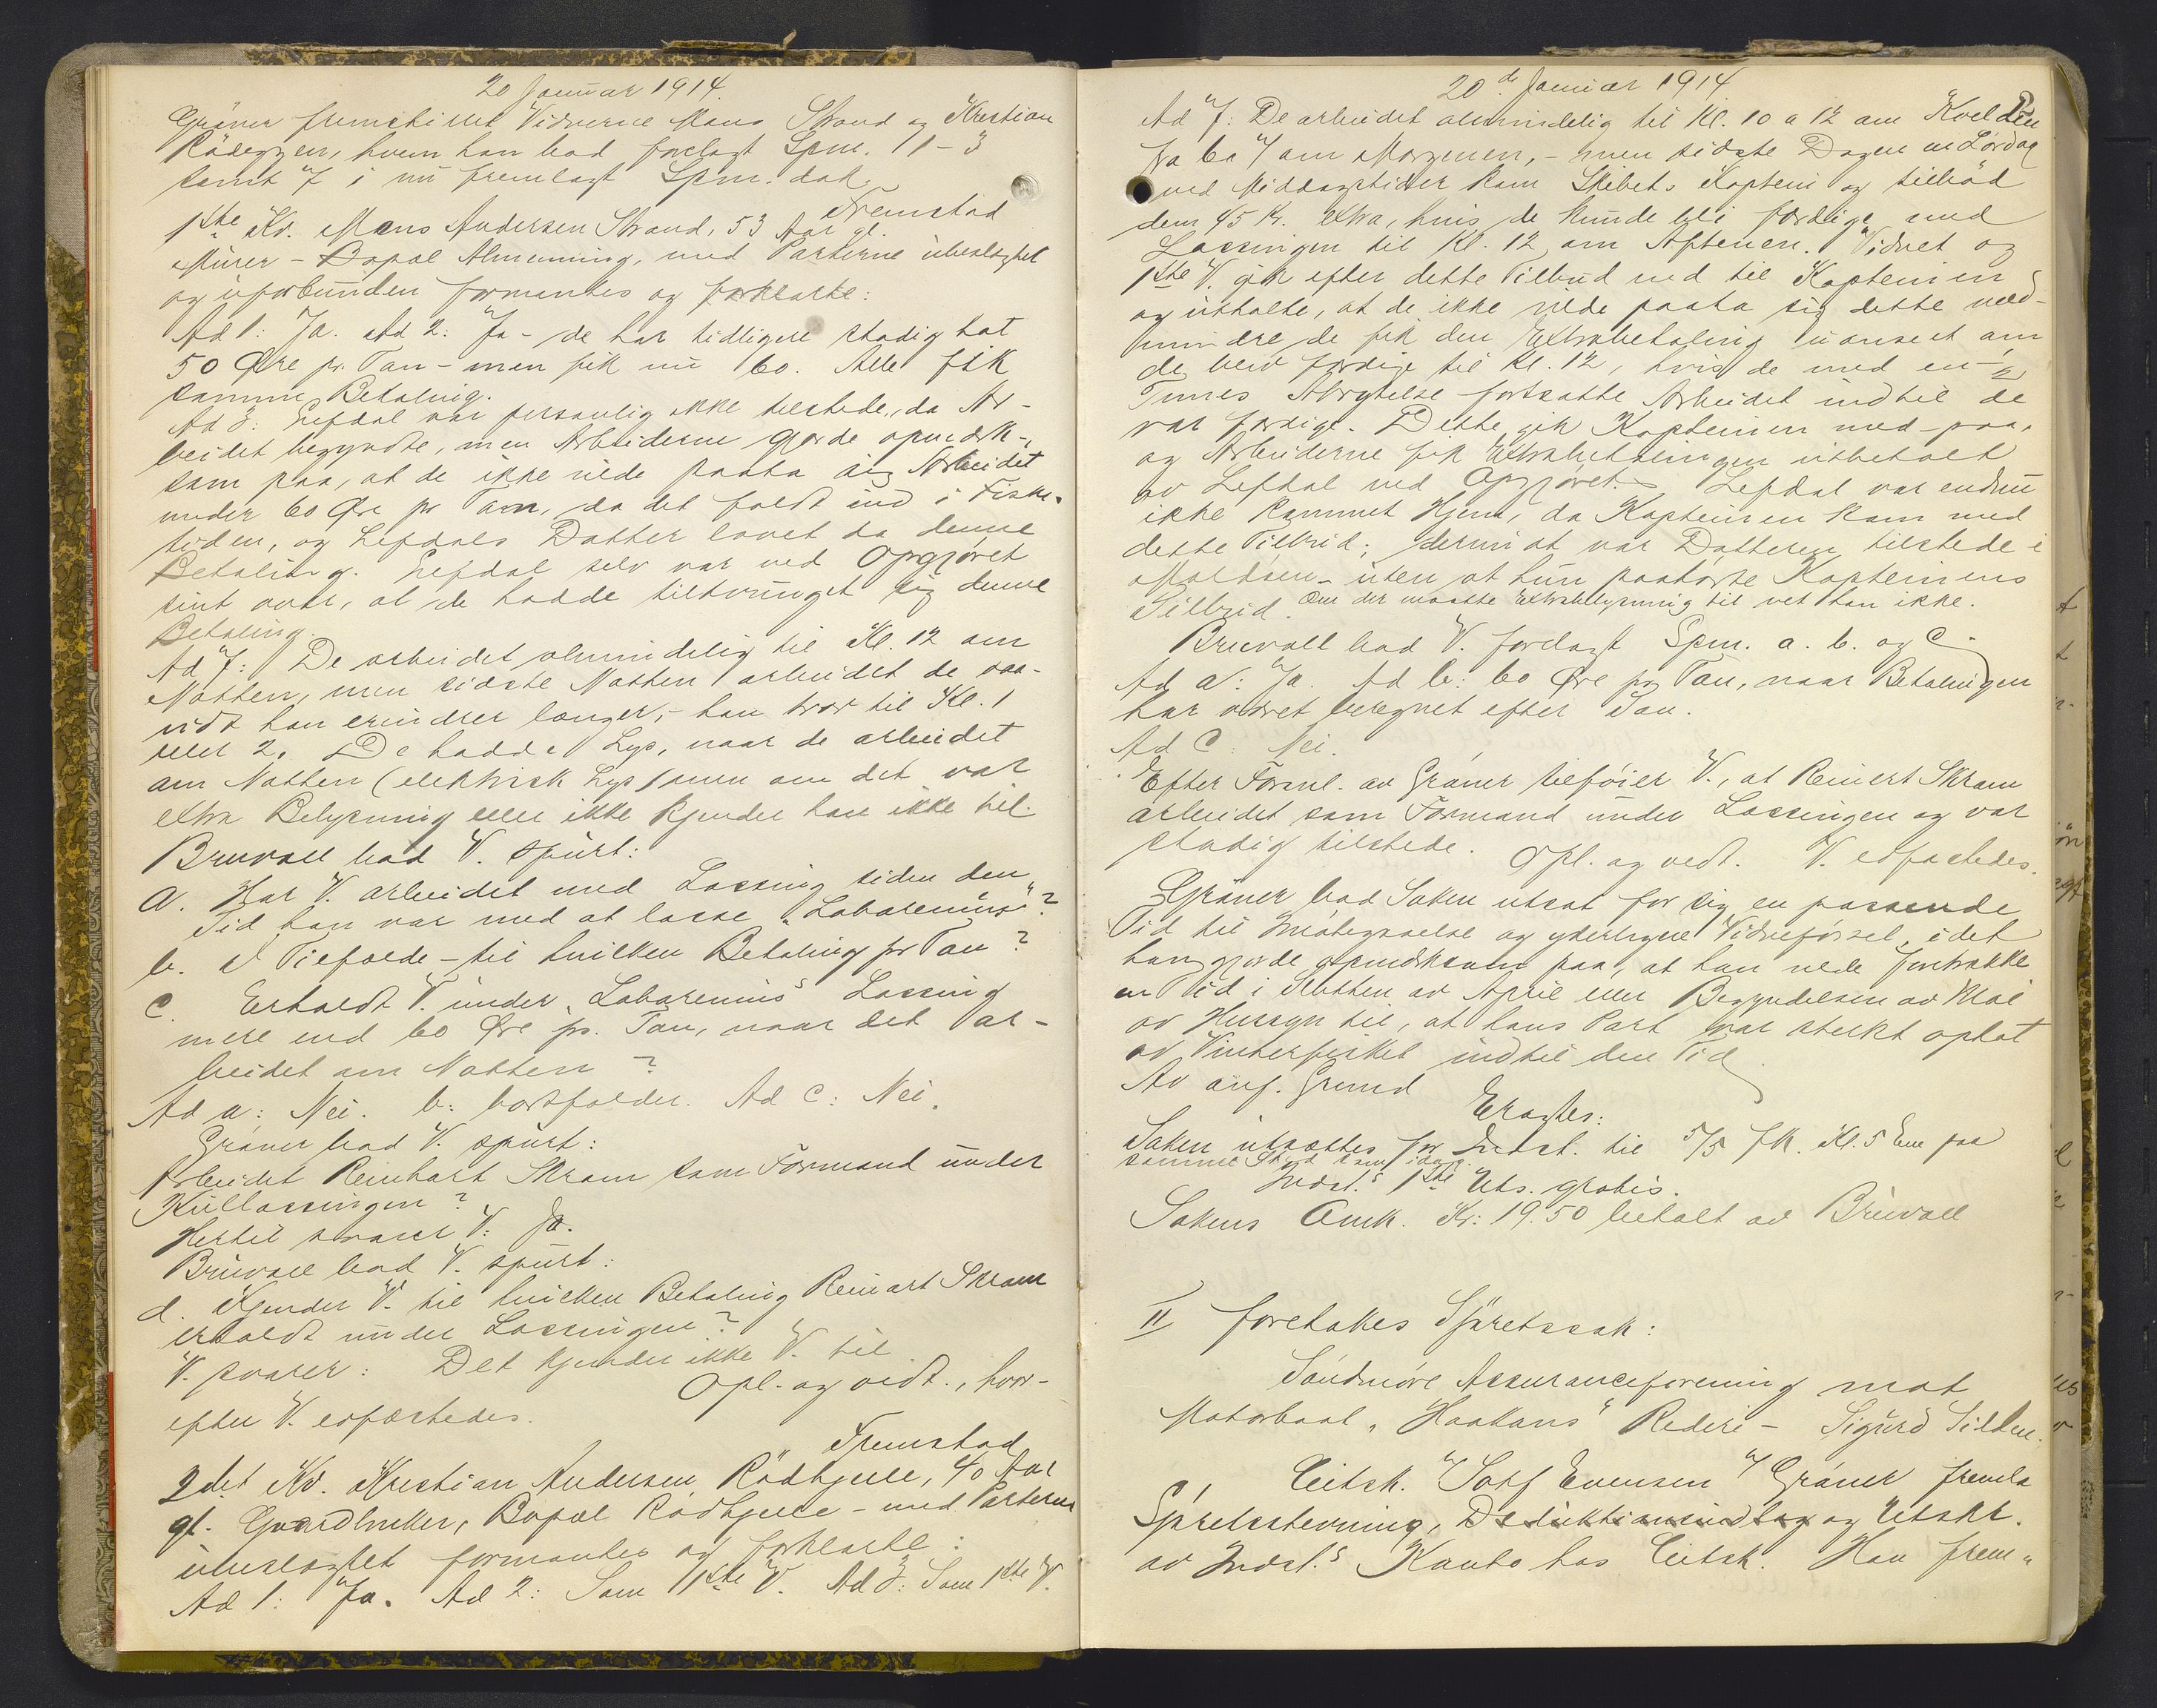 20 Januar 1914.
Gröner fremstillet Vidnerne Mons Strand og Kristian
Rödeggen, hvem han bad forelagt Spm. 1-3
samt 7 i nu fremlagt Spm. dok.
Fremstod
1ste Kv. Mons Andersen Strand, 53 Aar gl.
Murer - Bopæl Almenning, med Parterne ubeslægtet
og uforbunden formantes og forklarte:
Ad 1: Ja. Ad 2: Ja - de har tidligere stadig hat
50 Øre pr. Ton - men fik nu 60. Alle fik
samme Betaling.
Ad 3: Lefdal var personlig ikke tilstede, da Ar-
beidet begyndte, men Arbeiderne gjorde opmerk-
som paa, at de ikke vilde paata sig Arbeidet
under 60 Øre pr Ton, da det faldt ind i Fiske-
tiden, og Lefdals Datter lovet da denne
Betaling. Lefdal selv var ved Opgjöret
sint over, at de hadde tiltvunget sig denne
Betaling.
Ad 7: De arbeidet almindelig til Kl. 12 om
Natten, men sidste Natten arbeidet de saa-
vidt han erindrer længer, - han tror til Kl. 1
eller 2. De hadde Lys, naar de arbeidet
om Natten (elektrisk Lys) men om det var
extra Belysning eller ikke kjender han ikke til.
Bruvoll bad V. spurt:
a. Har V. arbeidet med Lossing siden den
Tid han var med at losse "Labarenus"?
b. I Tilfælde - til hvilken Betaling pr Ton?
c. Erholdt V. under "Labarenus" Lossing
mere end 60 Øre pr. Ton, naar det ar-
beidet om Natten?
Ad a: Nei. b: bortfalder. Ad c: Nei.
Gröner bad V. spurt:
Arbeidet Reinhart Skram som Formand under
Kullossingen?
Hertil svarer V: Ja.
Bruvoll bad V. spurt:
d. Kjender V. til hvilken Betaling Reinart Skram
erholdt under Lossingen?
V. svarer: Det kjender ikke V. til.
Opl. og vedt., hvor-
efter V. edfæstedes.
Fremstod
2det Kv. Kristian Andersen Rödkjell, 40 Aar
gl. Gaardbruker, Bopæl Rödkjell - med Parterne
ubeslægtet formantes og forklarte:
Ad 1: Ja. Ad 2: Som 1ste V. Ad 3: Som 1ste V.
20de Januar 1914
Ad 7: De arbeidet almindelig til Kl. 10 a 12 om Kvelden
fra 6 a 7 om Morgenen, - men sidste Dagen en Lørdag
ved Middagstider kom Skibets Kaptein og tilbød
dem 45 Kr. extra, hvis de kunde bli færdige med
Lossingen til Kl. 12 om Aftenen. Vidnet og
1ste V. gik efter dette Tilbud ned til Kapteinen
og uttalte, at de ikke vilde paata sig dette med-
mindre de fik den Extrabetaling uanseet om
de blev færdige til Kl. 12, hvis de med en
Times Avbrytelse fortsatte Arbeidet indtil de
var færdige. Dette gik Kapteinen med paa,
og Arbeiderne fik Extrabetalingen utbetalt
av Lefdal ved Opgjøret. Lefdal var endnu
ikke kommet Hjem, da Kapteinen kom med
dette Tilbud; derimot var Datteren tilstede i
Maldsen - uten at hun paahørte Kapteinens
Tilbud. Om der maatte Extrabelysning til vet han ikke.
Bruvoll bad V. forelagt Spm. a. b. og c.
Ad a: Ja. Ad b: 60 Øre pr Ton, naar Betalingen
har været beregnet efter Ton.
Ad c: Nei.
Efter Foranl. av Gröner tilføier V., at Reinert Skram
arbeidet som Formand under Lossingen og var
stadig tilstede. Opl. og vedt. V. edfæstedes.
Gröner bad Saken utsat for sig en passende
Tid til Imøtegaaelse og yderligere Vidneførsel, idet
han gjorde opmerksom paa, at han vilde foretrække
en Tid i Slutten av April eller Begyndelsen av Mai
av Hensyn til, at hans Part var sterkt optat
av Vinterfisket indtil den Tid.
Av anf. Grund
Eragtes:
Saken utsættes for Indst. til 5/5 fk. Kl. 5 Em paa
samme Sted som idag.
Indst.s 1ste Uts. gratis.
Sakens Omk. Kr: 19.50 betalt av Bruvoll
II foretokes Sjøretssak:
Söndmöre Assuranceforening mot
Motorbaat "Haakons" Rederi - Sigurd Silden.
Citsk. v/ Sorf Evensen v/ Gröner fremla
Sjøretsstevning, Deduktionsindlæg og Utskr.
av Indst.s Konto hos Citsk. Han frem-